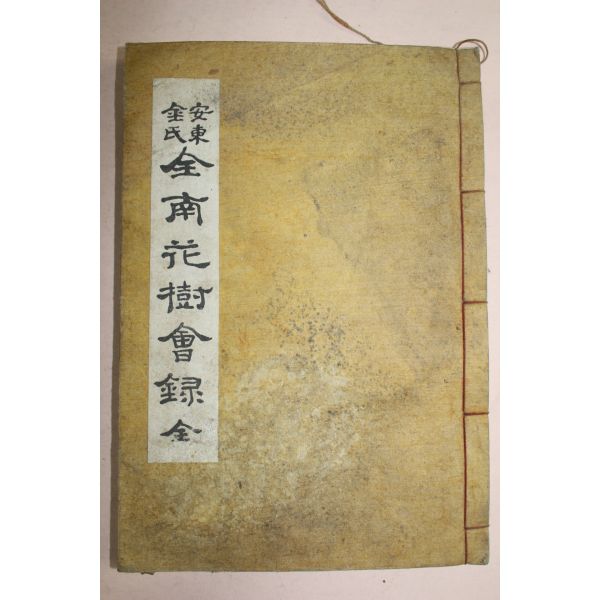 安東
金氏
全南花樹會録全